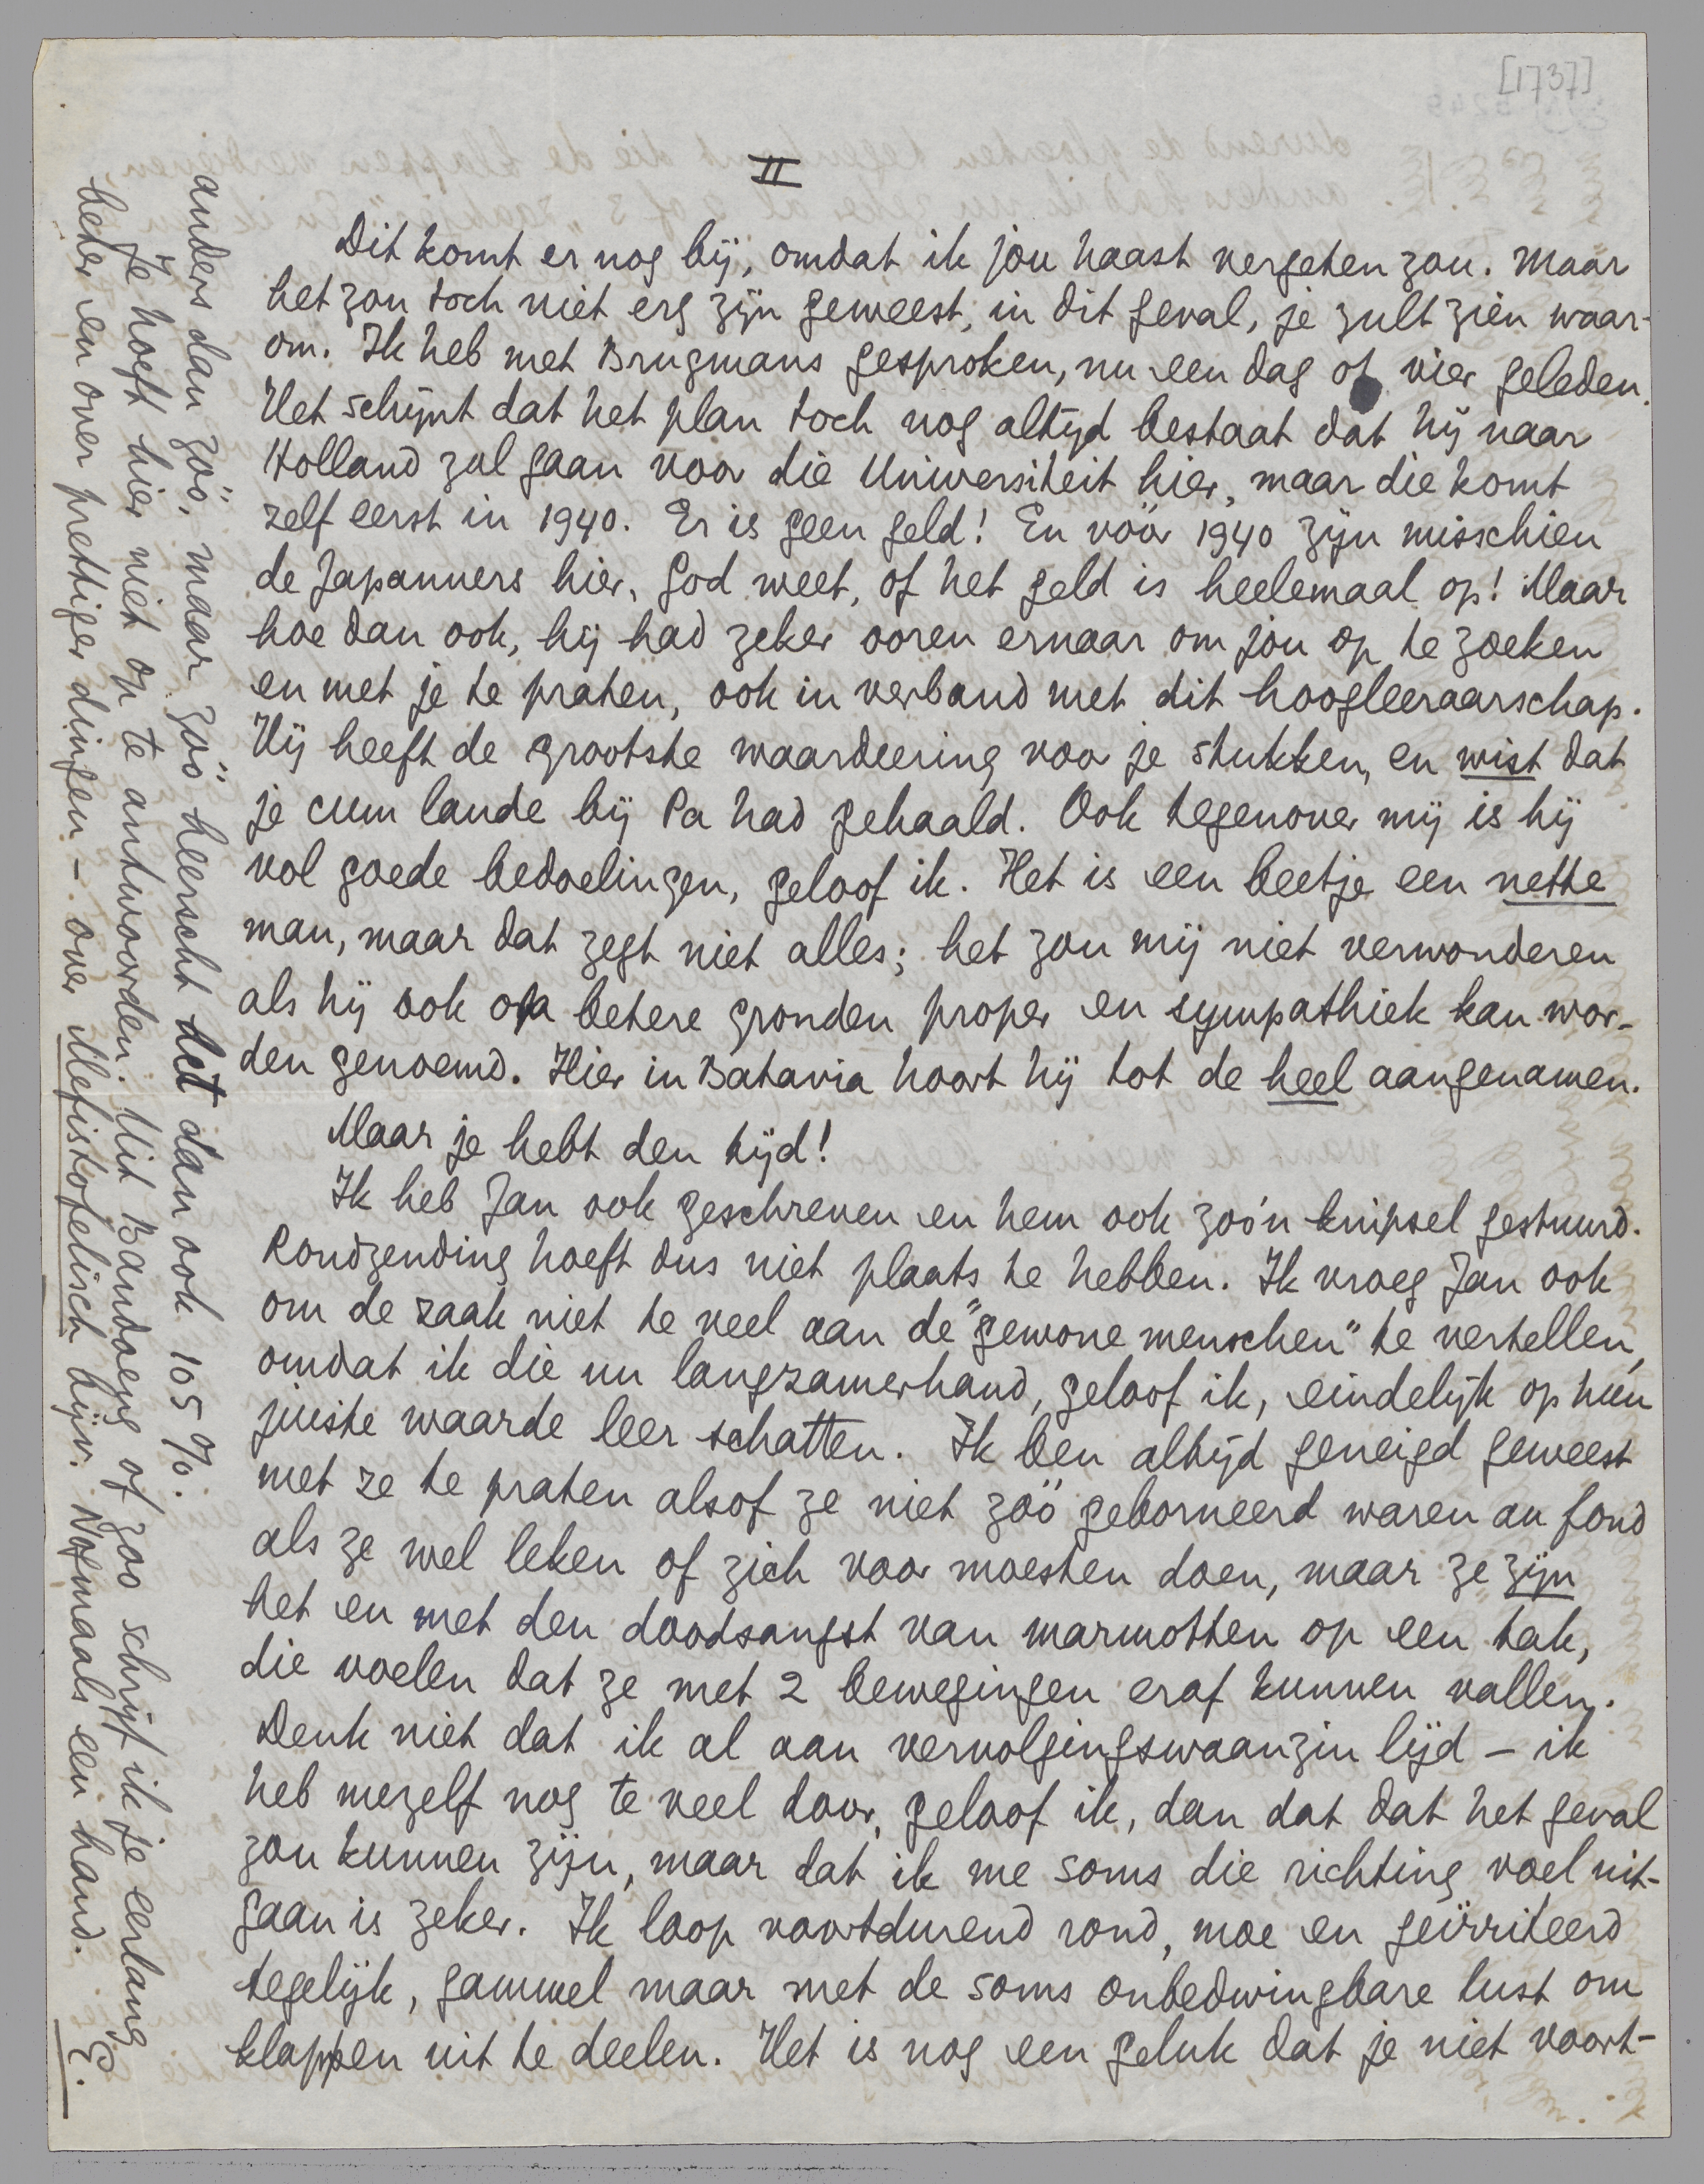 [1737]
II
Dit komt er nog bij, omdat ik jou haast vergeten zou. Maar
het zou toch niet erg zijn geweest, in dit geval, je zult zien waar-
om. Ik heb met Brugmans gesproken, nu een dag of vier geleden.
Het schijnt dat het plan toch nog altijd bestaat dat hij naar
Holland zal gaan voor die Universiteit hier, maar die komt
zelf eerst in 1940. Er is geen geld! En vóór 1940 zijn misschien
de Japanners hier, God weet, of het geld is heelemaal op! Maar
hoe dan ook, hij had zeker ooren ernaar om jou op te zoeken
en met je te praten, ook in verband met dit hoogleeraarschap.
Hij heeft de grootste waardeering voor je stukken, en wist dat
je cum laude bij Pa had gehaald. Ook tegenover mij is hij
vol goede bedoelingen, geloof ik. Het is een beetje een nette
man, maar dat zegt niet alles; het zou mij niet verwonderen
als hij ook op betere gronden proper en sympathiek kan wor-
den genoemd. Hier in Batavia hoort hij tot de heel aangenamen.
Maar je hebt den tijd!
Ik heb Jan ook geschreven en hem ook zoo'n knipsel gestuurd.
Rondzending hoeft dus niet plaats te hebben. Ik vroeg Jan ook
om de zaak niet te veel aan de "gewone menschen" te vertellen,
omdat ik die nu langzamerhand, geloof ik, eindelijk op hun
juiste waarde leer schatten. Ik ben altijd geneigd geweest
met ze te praten alsof ze niet zóó geborneerd waren au fond
als ze wel leken of zich voor moesten doen, maar ze zijn
het en met den doodsangst van marmotten op een tak,
die voelen dat ze met 2 bewegingen eraf kunnen vallen.
Denk niet dat ik al aan vervolgingswaanzin lijd – ik
heb mezelf nog te veel door, geloof ik, dan dat dat het geval
zou kunnen zijn, maar dat ik me soms die richting voel uit-
gaan is zeker. Ik loop voortdurend rond, moe en geïrriteerd
tegelijk, gammel maar met de soms onbedwingbare lust om
klappen uit te deelen. Het is nog een geluk dat je niet voort-
anders dan zóó, maar zóó heerscht het dan ook 105 %.
Je hoeft hier niet op te antwoorden. Uit Bandoeng of zoo schrijf ik je eerlang
beter en over prettiger dingen – over Mefistofelisch bijv. Nogmaals een hand.
E.